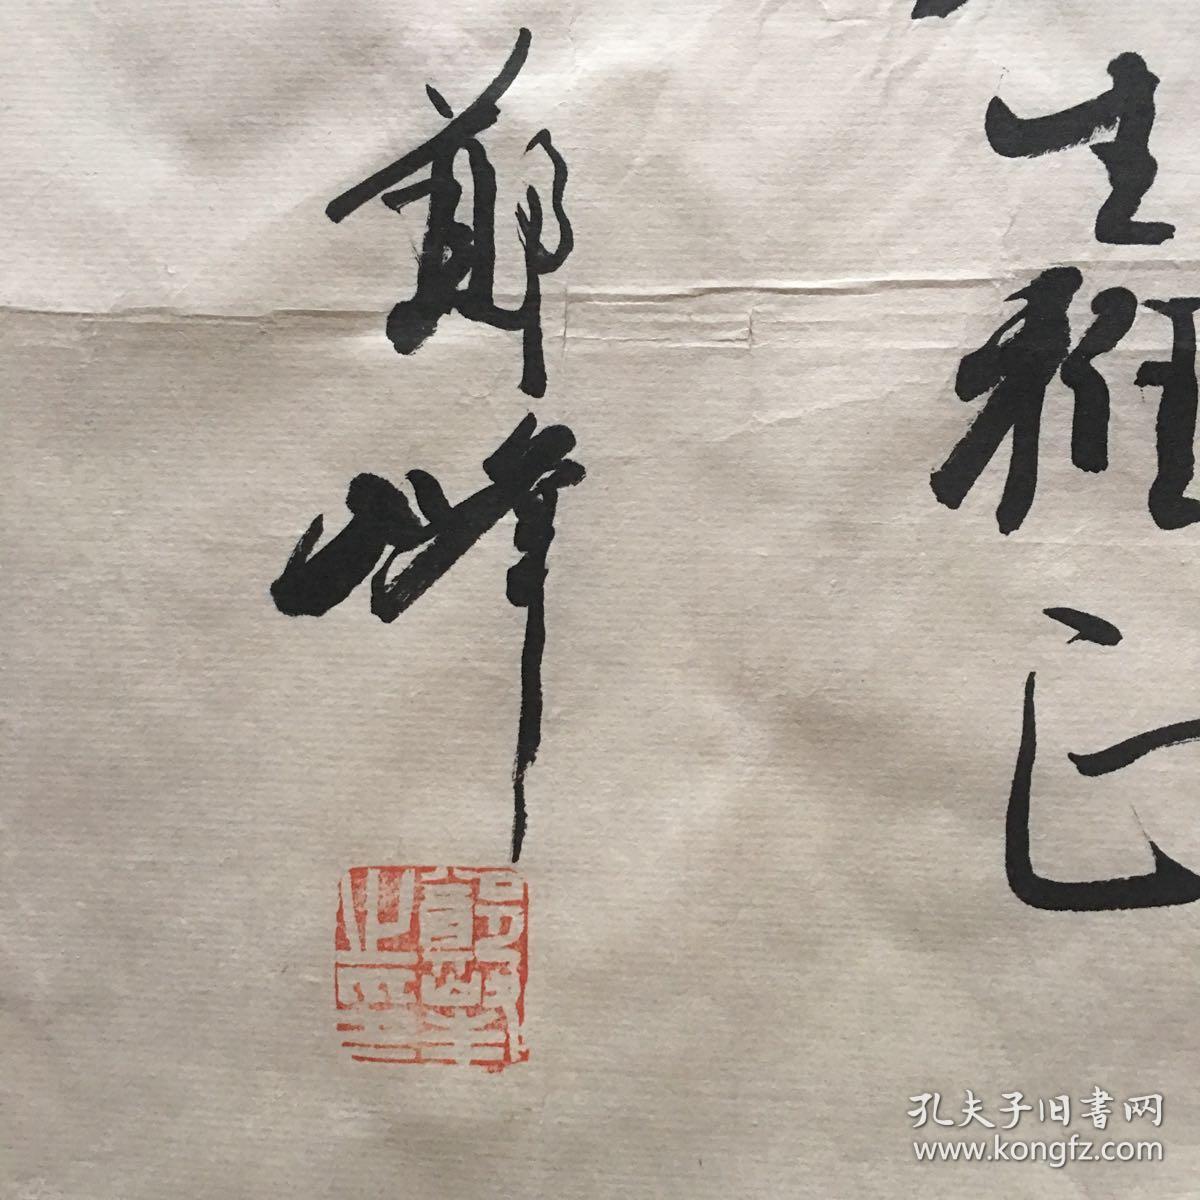 生雅正
鄭峰
鄭峰之印
孔夫子旧書网
www.kongfz.com